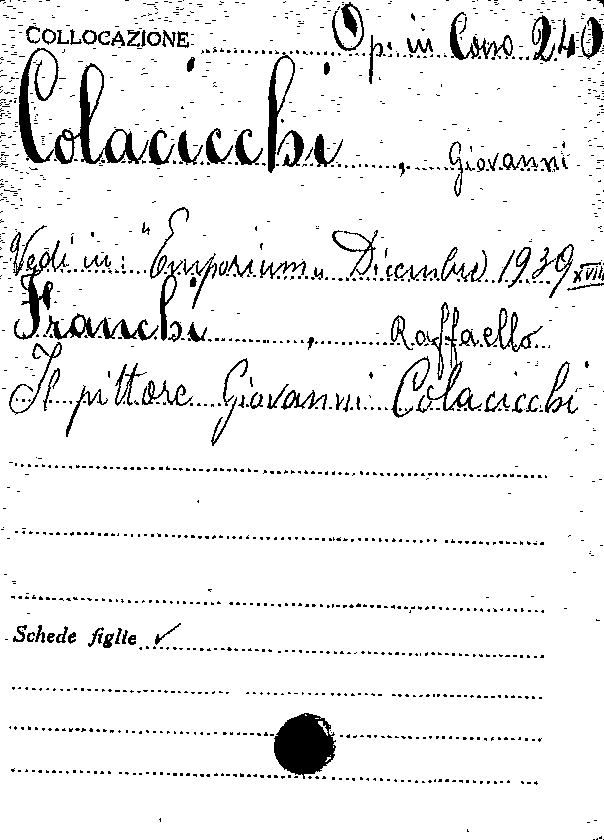 COLLOCAZIONE Op. in Cons 240
Colacicchi, Giovanni
Vedi in: "Emporium„ Dicembre 1939 XVIII
Franchi, Raffaello
Il pittore Giovanni Colacicchi
Schede figlie ✓